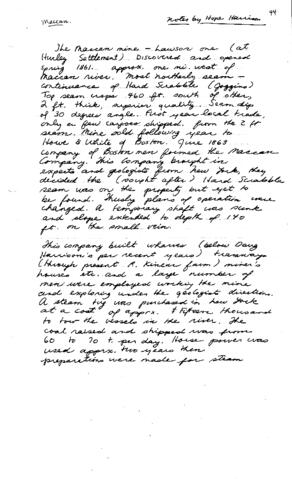 44
Maccan.
Notes by Hope Harrison
The Maccan mine - Lawson one (at
Hurley Settlement). Discovered and opened
Spring 1861. approx. one mi. west of
Maccan river. Most northerly seam -
continuance of Hard Scrabble (Joggins)
Top seam crops 960 ft. south of other,
2 ft. thick, superior quality. Seam dip
of 30 degrees angle. First year local trade,
only a few cargoes shipped. from the 2 ft
seam. Mine sold following year to
Howe & White of Boston. June 1863
company of Boston men formed the Maccan
Company. This company brought in
experts and geologist from New York, they
decided the (sought after) Hard Scrabble
seam was on the property but yet to
be found. Thusly plans of operation were
changed. A temporary shaft was sunk
and slope extended to depth of 140
ft. on the small vein.
This company built wharves (below Doug
Harrison's per recent years) tramways
(through present farm) manor's
house etc. and a large number of
men were employed working the mine
and exploring under the geologist directions.
A steam tug was purchased in New York
at a cost of approx. $ fifteen thousand
to tow the vessels in the river. The
coal raised and shipped was from
60 to 70 t. per day. Horse power was
used approx. two years then
preparations were made for steam